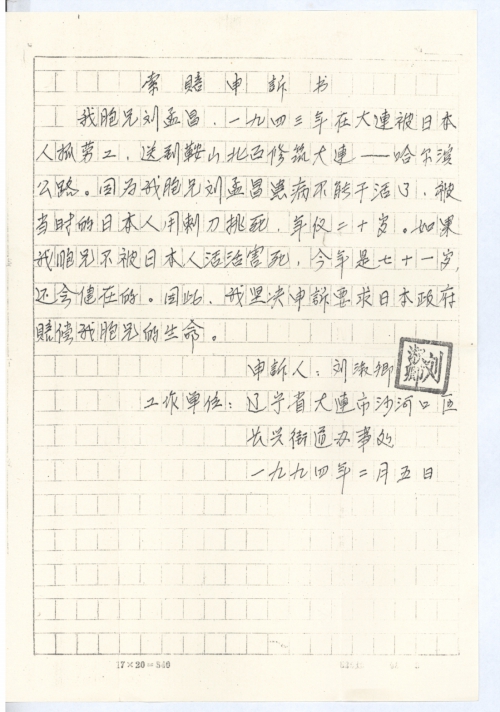 索賠申訴书
我胞兄刘孟昌，一九四三年在大連被日本
人抓劳工，送到鞍山北西修筑大連——哈尔滨
公路。因为我胞兄刘孟昌患病不能干活了，被
当时的日本人用刺刀挑死，年仅二十岁。如果
我胞兄不被日本人活活害死，今年是七十一岁，
还会健在的。因此，我坚决申訴要求日本政府
賠偿我胞兄的生命。
申訴人：刘淑卿
工作单位：辽宁省大連市沙河口区
长兴街道办事处
一九九四年二月五日
17×20=340